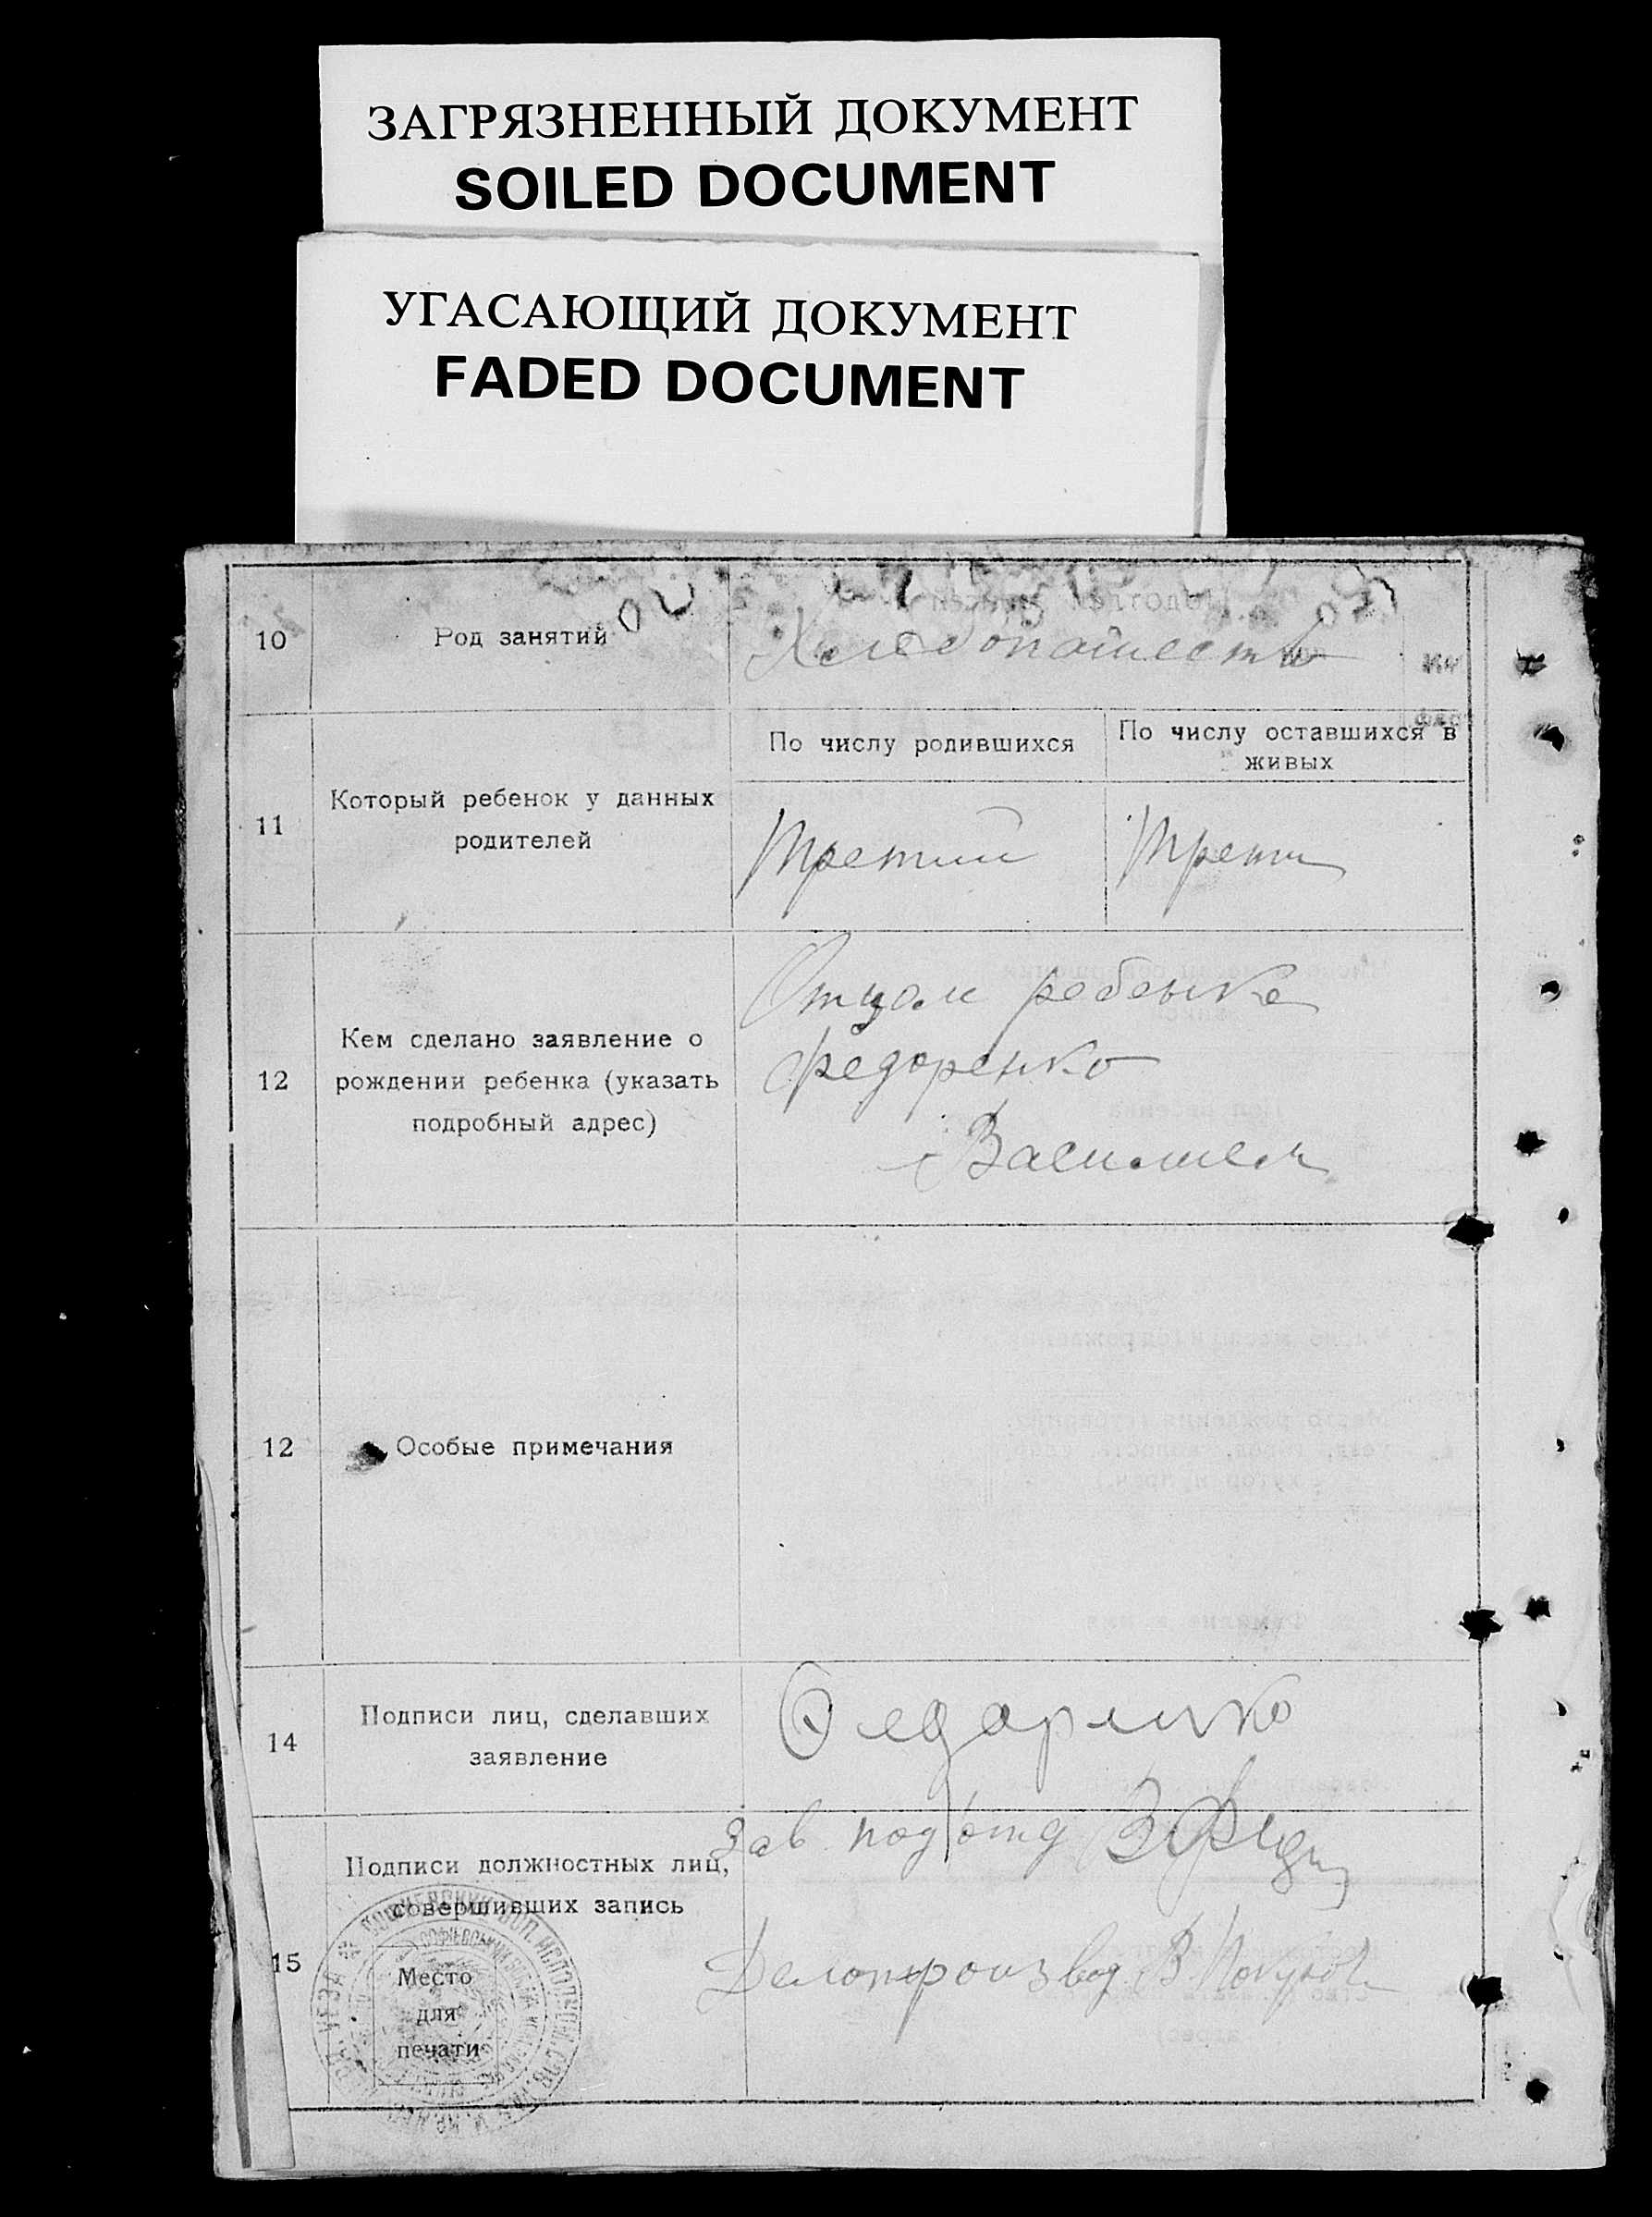 ЗАГРЯЗНЕННЫЙ ДОКУМЕНТ
SOILED DOCUMENT
УГАСАЮЩИЙ ДОКУМЕНТ
FADED DOCUMENT
10
Род занятий
Хлебопашество
11
Который ребенок у данных
родителей
По числу родившихся
По числу оставшихся в
живых
Третий
Трети
12
Кем сделано заявление о
рождении ребенка (указать
подробный адрес)
Отцом ребенка
Федоренко
Василием
12
Особые примечания
14
Подписи лиц, сделавших
заявление
Федаренко
15
Подписи должностных лиц,
совершивших запись
Место
для
печати
Зав. подотд
Делопроизвод В.